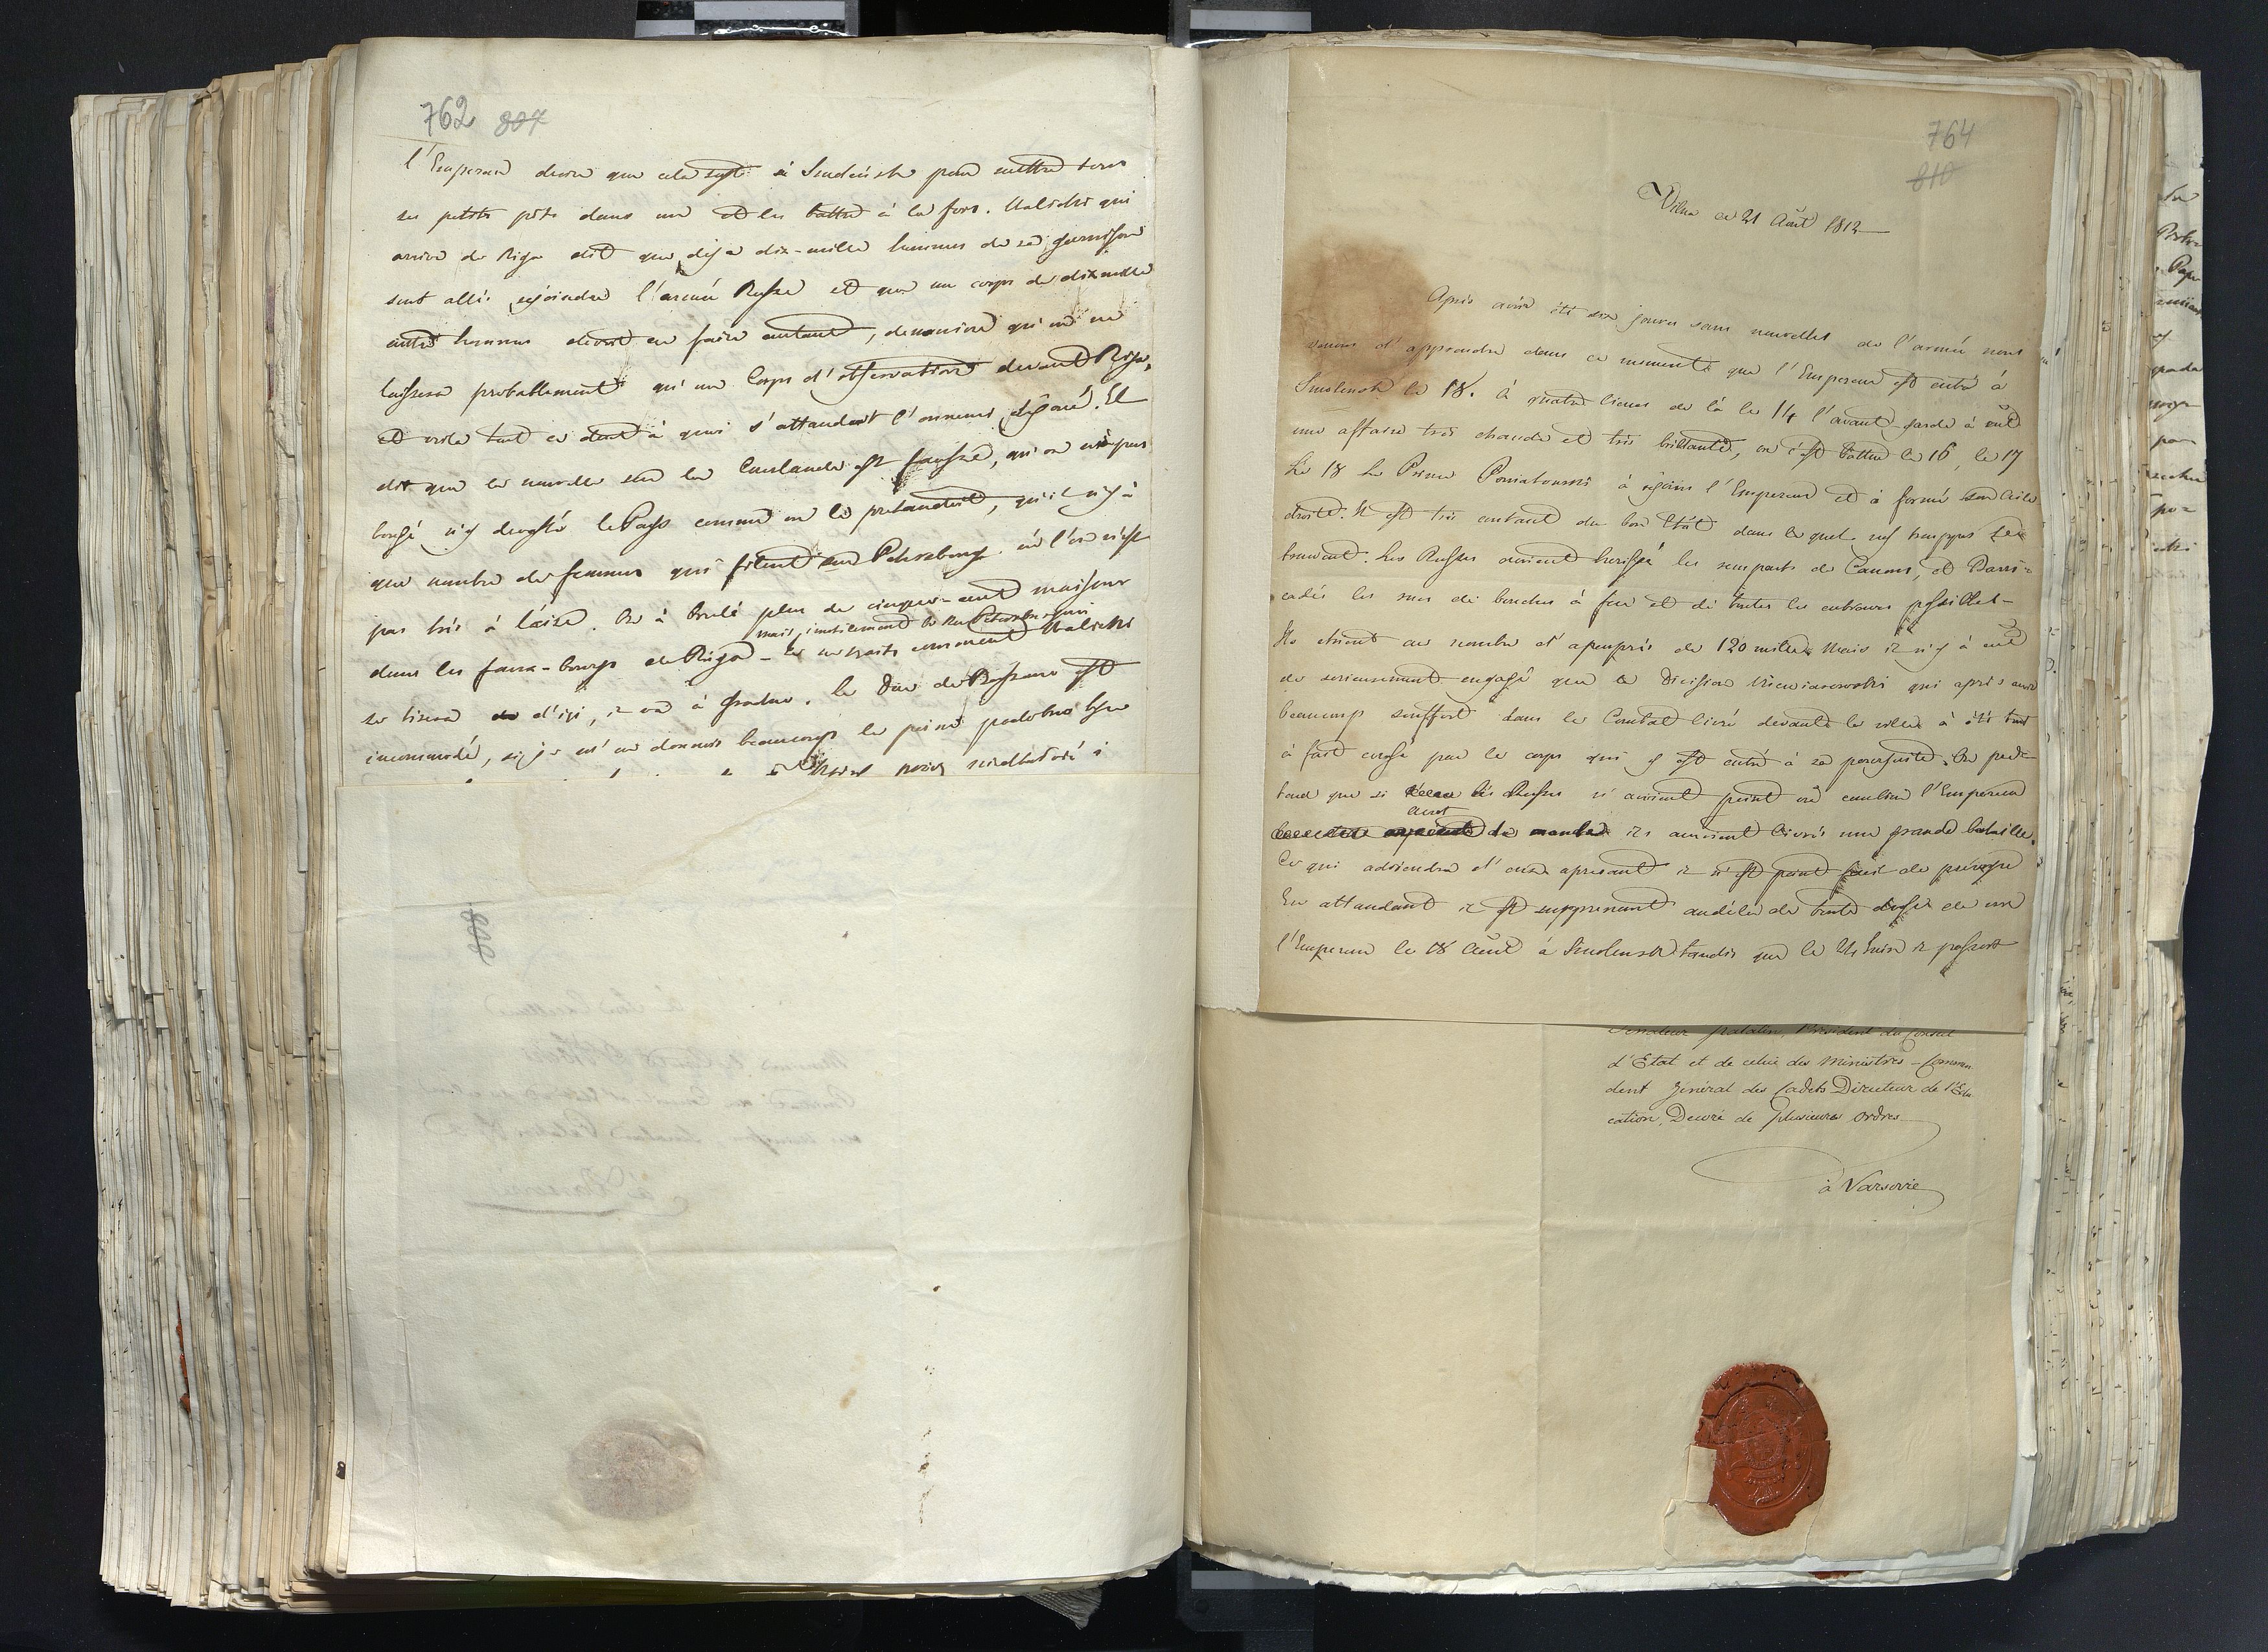 762 807
l'Empereur desire que cela soit à Smolensk pour mettre tous
ses petits pots dans un et les battre à la fois. Ualicki qui
arrive de Riga dit que deja dix-mille hommes de sa garnison
sont allés rejoindre l'armée Russe et que un corps de dix mille
autre hommes devoit en faire autant, de maniere qu'on ne
laissera probablement qu'un Corps d'observations devant Riga,
et voila tout ce dont à quoi s'attendoit l'ennemi
dit que la nouvelle sur la Courlande est fausse, qu'on n'a pas
bougé n'y devasté le Pays comme on le pretendoit, qu'il n'y à
que nombre de femmes qui filent sur Petersbourg où l'on n'est
pas très à l'aise. On à brulé plus de cinque-cent maisons
mais inutilement
dans les faux-bourgs de Riga - Ualicki
se tirera d'ici, il va à Grodno. le Duc de Bassano est
incommodé, si je m'en donnois beaucoup la peine
808
764
810
Vilna ce 21 Aout 1812
Apres avoir été six jours sans nouvelles de l'armée nous
venons d'apprendre dans ce moment que l'Empereur est entré à
Smolensk le 18. à quatre lieues de là le 14 l'avant-garde à eut
une affaire très chaude et très brillante, on s'est battu le 16, le 17
Le 18 Le Prince Poniatowski à rejoint l'Empereur et à formé son aile
droite. Il est très content du bon état dans le quel nos trouppes se
trouvent. Les Russes avoient herissé les remparts de Canons, et Barri=
cadés les rues de bouches à feu et de toutes les entraves possibles-
Ils etoient au nombre d'apeuprès de 120 mille. Mais il n'y à eut
de serieusement engagé que la Division qui après avoir
beaucoup souffert dans le Combat livré devant la ville à été tout
à fait par le corps qui y est entré à sa poursuite. On pré=
tend que si les Russes n'avoient point vû combien l'Empereur
avoit de monde ils auroient livrés une grande bataille.
Ce qui adviendra d'eux apresent il n'est point de prévoir
En attandant il est surprenant audéla de toute de voir
l'Empereur le 18 Aout à Smolensk tandis que le 24 Juin il passoit
Senateur palatin, Président du Conseil
d'Etat et de celui des Ministres - Comman
dent Général des Cadets Directeur de l'Edu
cation, Decoré de plusieures ordres
à Varsovie